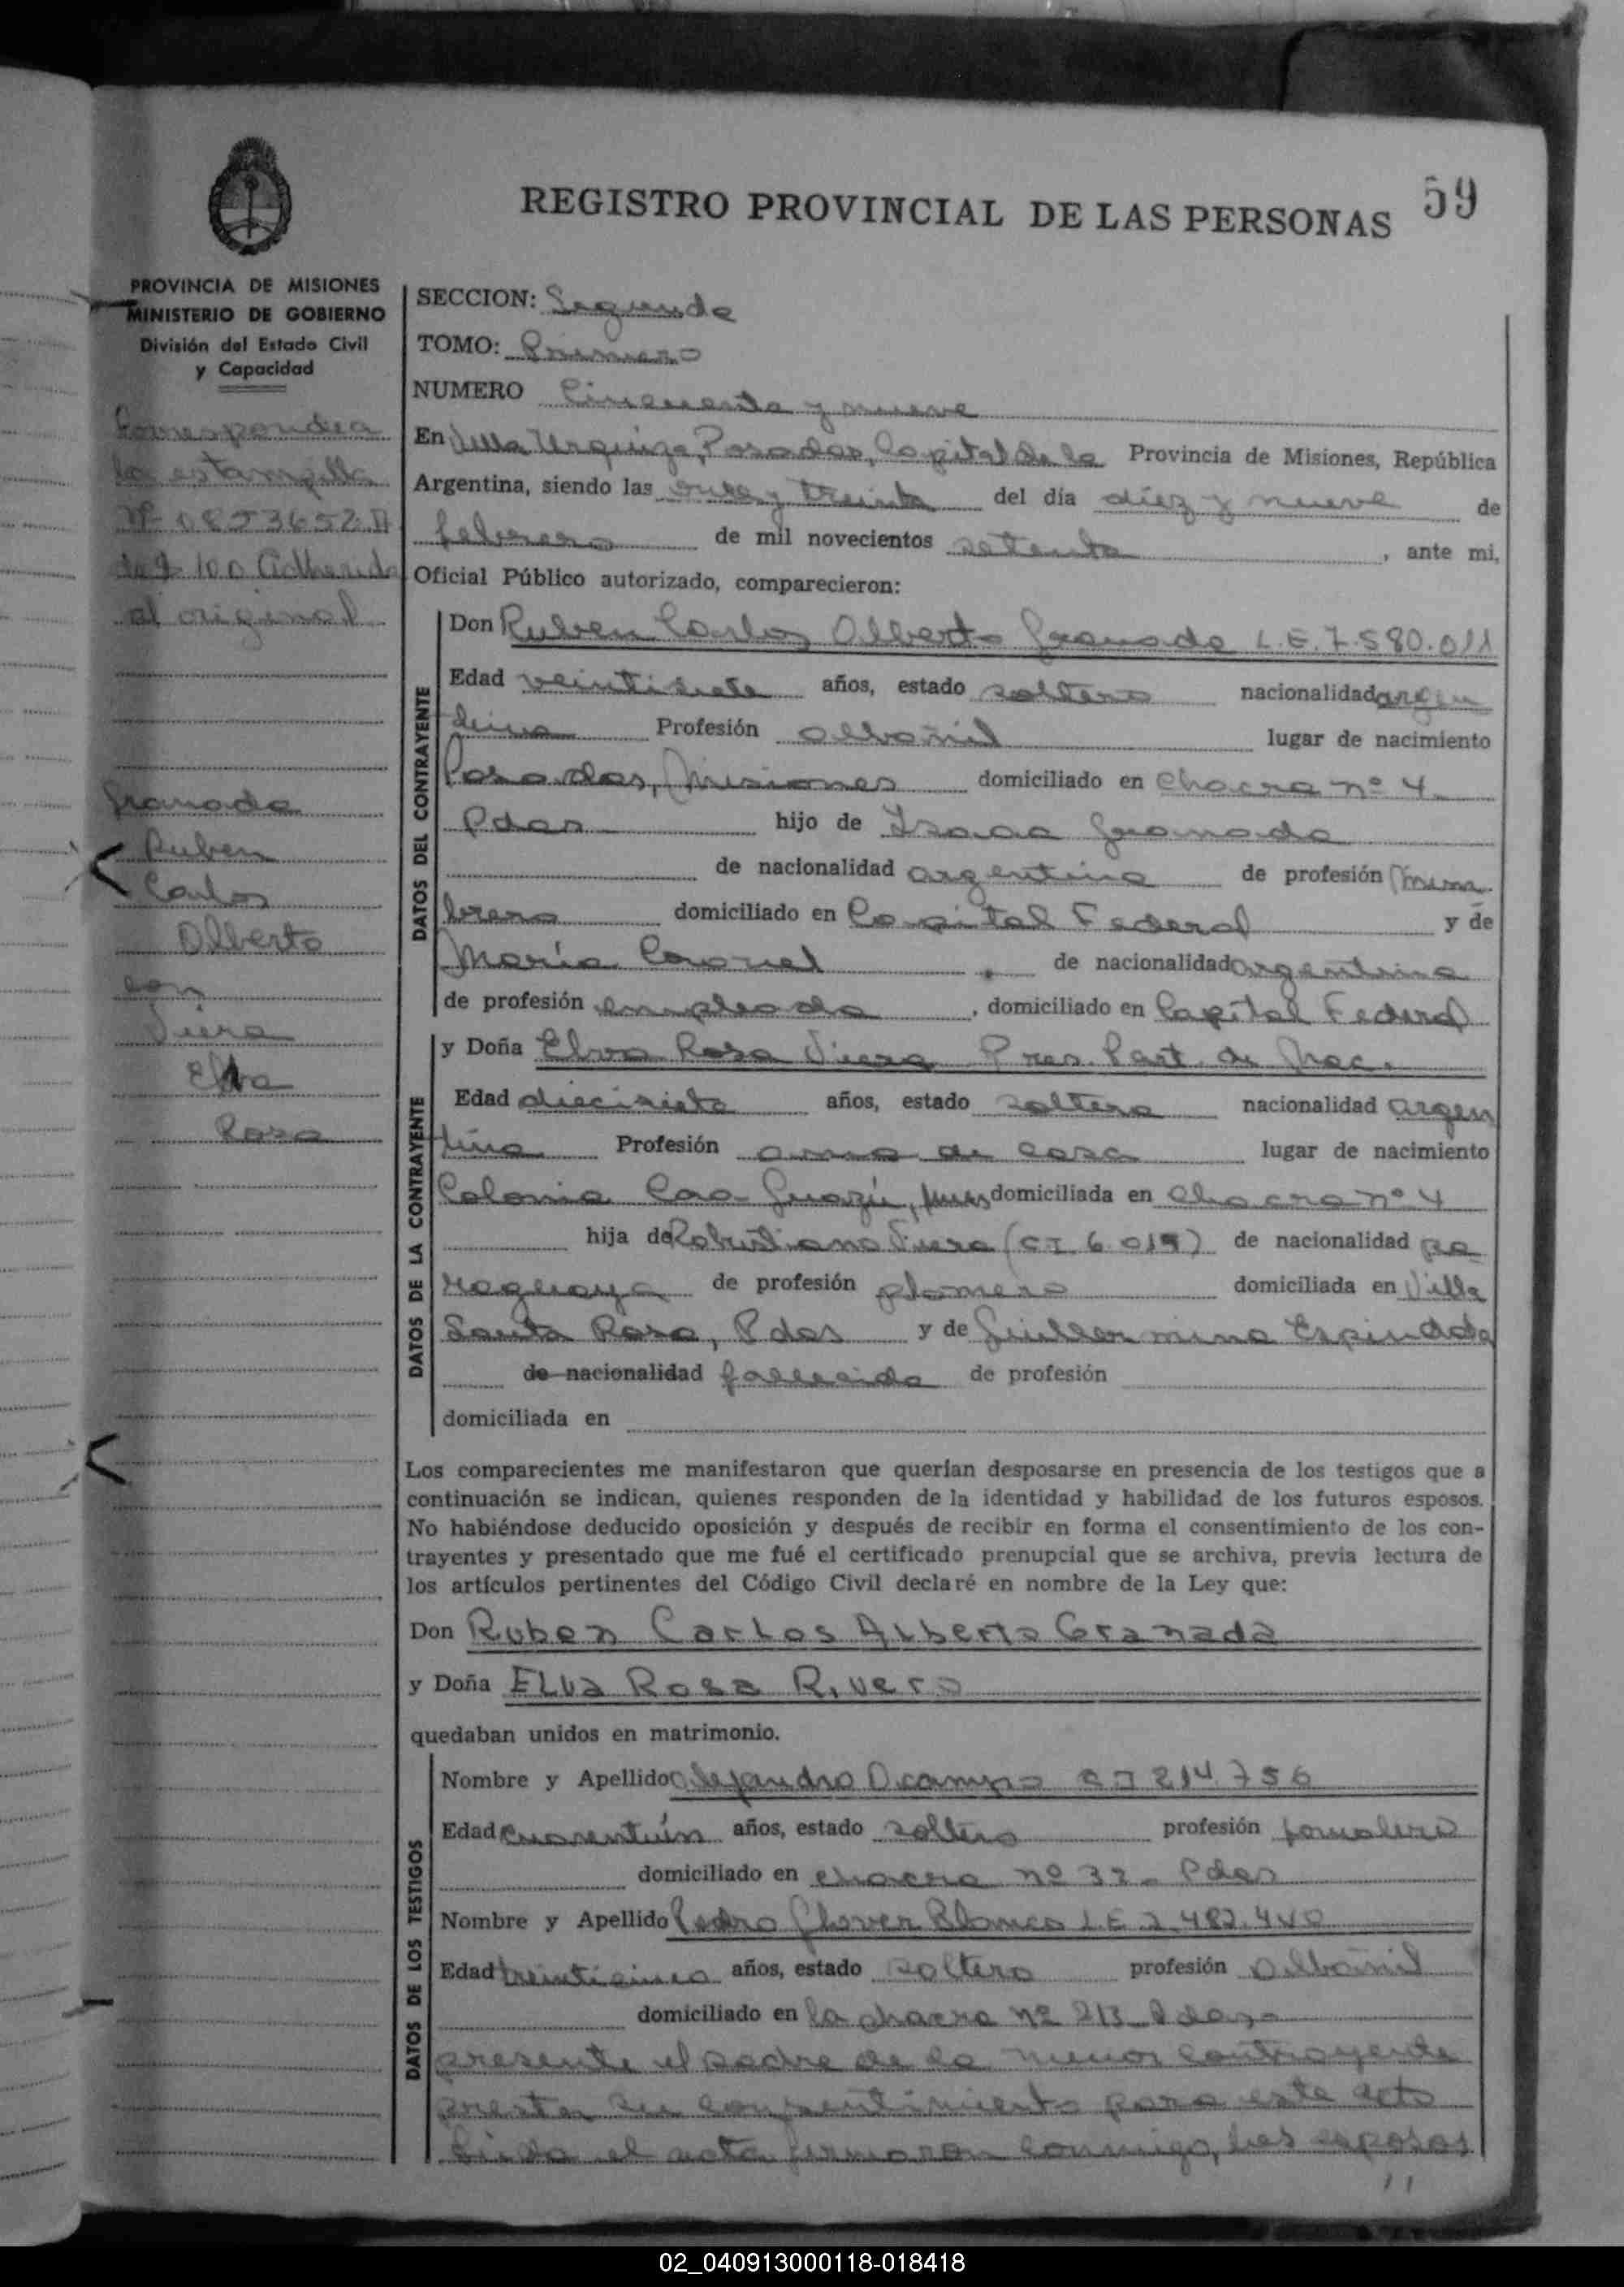 59
REGISTRO PROVINCIAL DE LAS PERSONAS
PROVINCIA DE MISIONES
MINISTERIO DE GOBIERNO
División del Estado Civil
y Capacidad
Correspondea
la estampilla
Nº 0853652 A
de $ 100 Adherida
al original
Granada
Ruben
Carlos
Alberto
con
Viera
Elva
Rosa
SECCION: Segunda
TOMO: Primero
NUMERO Cincuenta y nueve
En Villa Urquiza, Posadas, Capital de la Provincia de Misiones, República
Argentina, siendo las once y treinta del día diez y nueve de
febrero de mil novecientos setenta, ante mi,
Oficial Público autorizado, comparecieron:
DATOS DEL CONTRAYENTE
Don Ruben Carlos Alberto Granada L.E. 7.580.011
Edad veintisiete años, estado soltero nacionalidad argen
tina Profesión albañil lugar de nacimiento
Posadas, Misiones domiciliado en Chacra nº 4
Pdas hijo de Isaac Granada
de nacionalidad argentina de profesión mim
brero domiciliado en Capital Federal y de
María Coronel de nacionalidad argentina
de profesión empleada, domiciliado en Capital Federal
DATOS DE LA CONTRAYENTE
y Doña Elva Rosa Viera Pres. Part. de Nac.
Edad diecisiete años, estado soltera nacionalidad argen
tina Profesión ama de casa lugar de nacimiento
Colonia Caa-Guazú, domiciliada en Chacra nº 4
hija de Robustiano Viera (CI 6.019) de nacionalidad pa
raguaya de profesión plomero domiciliada en Villa
Santa Rosa, Pdas y de Guillermina Espindola
de nacionalidad fallecida de profesión
domiciliada en
Los comparecientes me manifestaron que querían desposarse en presencia de los testigos que a
continuación se indican, quienes responden de la identidad y habilidad de los futuros esposos.
No habiéndose deducido oposición y después de recibir en forma el consentimiento de los con-
trayentes y presentado que me fué el certificado prenupcial que se archiva, previa lectura de
los artículos pertinentes del Código Civil declaré en nombre de la Ley que:
Don Ruben Carlos Alberto Granada
y Doña Elva Rosa Rivero
quedaban unidos en matrimonio.
DATOS DE LOS TESTIGOS
Nombre y Apellido Alejandro Ocampo CI 214756
Edad cuarentiún años, estado soltero profesión jornalero
domiciliado en chacra nº 32 - Pdas
Nombre y Apellido Pedro Glover Blanco L.E 2.482.440
Edad treinticinco años, estado soltero profesión albañil
domiciliado en la chacra nº 213 Pdas
presente el padre de la menor contrayente
presta su consentimiento para este acto
Leída el acta firmaron conmigo, los esposos
02_040913000118-018418